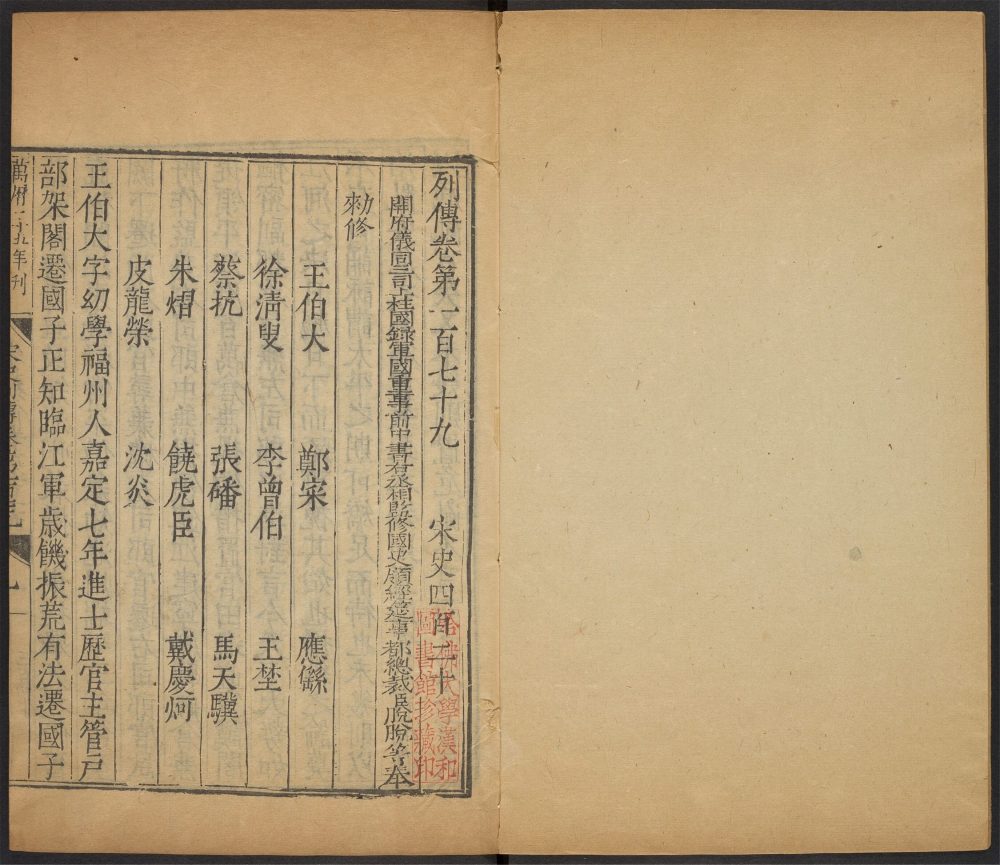 列傳卷第一百七十九 宋史四百二十
開府儀同三司上柱國錄軍國重事前中書右丞相監修國史領經筵事都總裁臣脫脫等奉
勑修
王伯大 鄭寀 應𦇦
徐清叟 李曾伯 王埜
蔡抗 張磻 馬天驥
朱熠 饒虎臣 戴慶炣
皮龍榮 沈炎
王伯大字幼學福州人嘉定七年進士歷官主管戶
部架閣遷國子正知臨江軍歲饑振荒有法遷國子
萬曆二十五年刊
哈佛大學漢和
圖書館珍藏印